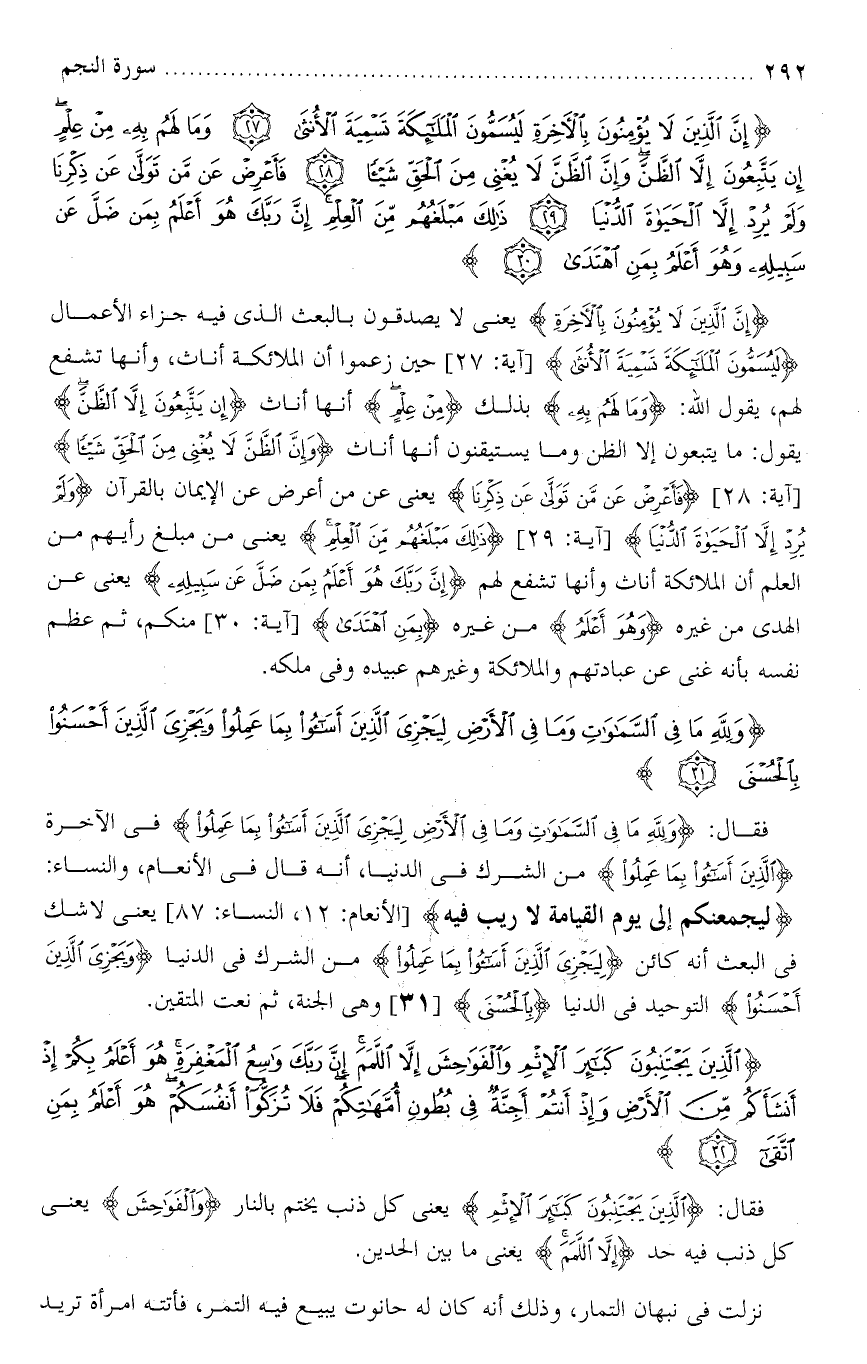 ٢٩٢ ........ سورة النجم
﴿ إِنَّ الَّذِينَ لَا يُؤْمِنُونَ بِالْآخِرَةِ لَيُسَمُّونَ الْمَلَائِكَةَ تَسْمِيَةَ الْأُنثَىٰ ۝٢٧ وَمَا لَهُم بِهِۦ مِنْ عِلْمٍ ۖ
إِن يَتَّبِعُونَ إِلَّا الظَّنَّ ۖ وَإِنَّ الظَّنَّ لَا يُغْنِى مِنَ الْحَقِّ شَيْئًا ۝٢٨ فَأَعْرِضْ عَن مَّن تَوَلَّىٰ عَن ذِكْرِنَا
وَلَمْ يُرِدْ إِلَّا الْحَيَوٰةَ الدُّنْيَا ۝٢٩ ذَٰلِكَ مَبْلَغُهُم مِّنَ الْعِلْمِ ۚ إِنَّ رَبَّكَ هُوَ أَعْلَمُ بِمَن ضَلَّ عَن
سَبِيلِهِۦ وَهُوَ أَعْلَمُ بِمَنِ اهْتَدَىٰ ۝٣٠ ﴾
﴿إِنَّ الَّذِينَ لَا يُؤْمِنُونَ بِالْآخِرَةِ﴾ يعنى لا يصدقون بالبعث الذى فيه جزاء الأعمال
﴿لَيُسَمُّونَ الْمَلَائِكَةَ تَسْمِيَةَ الْأُنثَىٰ﴾ [آية: ٢٧] حين زعموا أن الملائكة أناث، وأنها تشفع
لهم، يقول الله: ﴿وَمَا لَهُم بِهِۦ﴾ بذلك ﴿مِنْ عِلْمٍ ۖ﴾ أنها أناث ﴿إِن يَتَّبِعُونَ إِلَّا الظَّنَّ ۖ﴾
يقول: ما يتبعون إلا الظن وما يستيقنون أنها أناث ﴿وَإِنَّ الظَّنَّ لَا يُغْنِى مِنَ الْحَقِّ شَيْئًا﴾
[آية: ٢٨] ﴿فَأَعْرِضْ عَن مَّن تَوَلَّىٰ عَن ذِكْرِنَا﴾ يعنى عن من أعرض عن الإيمان بالقرآن ﴿وَلَمْ
يُرِدْ إِلَّا الْحَيَوٰةَ الدُّنْيَا﴾ [آية: ٢٩] ﴿ذَٰلِكَ مَبْلَغُهُم مِّنَ الْعِلْمِ ۚ﴾ يعنى من مبلغ رأيهم من
العلم أن الملائكة أناث وأنها تشفع لهم ﴿إِنَّ رَبَّكَ هُوَ أَعْلَمُ بِمَن ضَلَّ عَن سَبِيلِهِۦ﴾ يعنى عن
الهدى من غيره ﴿وَهُوَ أَعْلَمُ﴾ من غيره ﴿بِمَنِ اهْتَدَىٰ﴾ [آية: ٣٠] منكم، ثم عظم
نفسه بأنه غنى عن عبادتهم والملائكة وغيرهم عبيده وفى ملكه.
﴿وَلِلَّهِ مَا فِى السَّمَٰوَٰتِ وَمَا فِى الْأَرْضِ لِيَجْزِىَ الَّذِينَ أَسَٰٓـُٔوا۟ بِمَا عَمِلُوا۟ وَيَجْزِىَ الَّذِينَ أَحْسَنُوا۟
بِالْحُسْنَى ۝٣١ ﴾
فقال: ﴿وَلِلَّهِ مَا فِى السَّمَٰوَٰتِ وَمَا فِى الْأَرْضِ لِيَجْزِىَ الَّذِينَ أَسَٰٓـُٔوا۟ بِمَا عَمِلُوا۟﴾ فى الآخرة
﴿الَّذِينَ أَسَٰٓـُٔوا۟ بِمَا عَمِلُوا۟﴾ من الشرك فى الدنيا، أنه قال فى الأنعام، والنساء:
﴿ليجمعنكم إلى يوم القيامة لا ريب فيه﴾ [الأنعام: ١٢، النساء: ٨٧] يعنى لاشك
فى البعث أنه كائن ﴿لِيَجْزِىَ الَّذِينَ أَسَٰٓـُٔوا۟ بِمَا عَمِلُوا۟﴾ من الشرك فى الدنيا ﴿وَيَجْزِىَ الَّذِينَ
أَحْسَنُوا۟﴾ التوحيد فى الدنيا ﴿بِالْحُسْنَى﴾ [٣١] وهى الجنة، ثم نعت المتقين.
﴿الَّذِينَ يَجْتَنِبُونَ كَبَٰٓئِرَ الْإِثْمِ وَالْفَوَٰحِشَ إِلَّا اللَّمَمَ ۚ إِنَّ رَبَّكَ وَٰسِعُ الْمَغْفِرَةِ ۚ هُوَ أَعْلَمُ بِكُمْ إِذْ
أَنشَأَكُم مِّنَ الْأَرْضِ وَإِذْ أَنتُمْ أَجِنَّةٌ فِى بُطُونِ أُمَّهَٰتِكُمْ ۖ فَلَا تُزَكُّوٓا۟ أَنفُسَكُمْ ۖ هُوَ أَعْلَمُ بِمَنِ
اتَّقَىٰٓ ۝٣٢ ﴾
فقال: ﴿الَّذِينَ يَجْتَنِبُونَ كَبَٰٓئِرَ الْإِثْمِ﴾ يعنى كل ذنب يختم بالنار ﴿وَالْفَوَٰحِشَ﴾ يعنى
كل ذنب فيه حد ﴿إِلَّا اللَّمَمَ ۚ﴾ يعنى ما بين الحدين.
نزلت فى نبهان التمار، وذلك أنه كان له حانوت يبيع فيه التمر، فأتته امرأة تريد